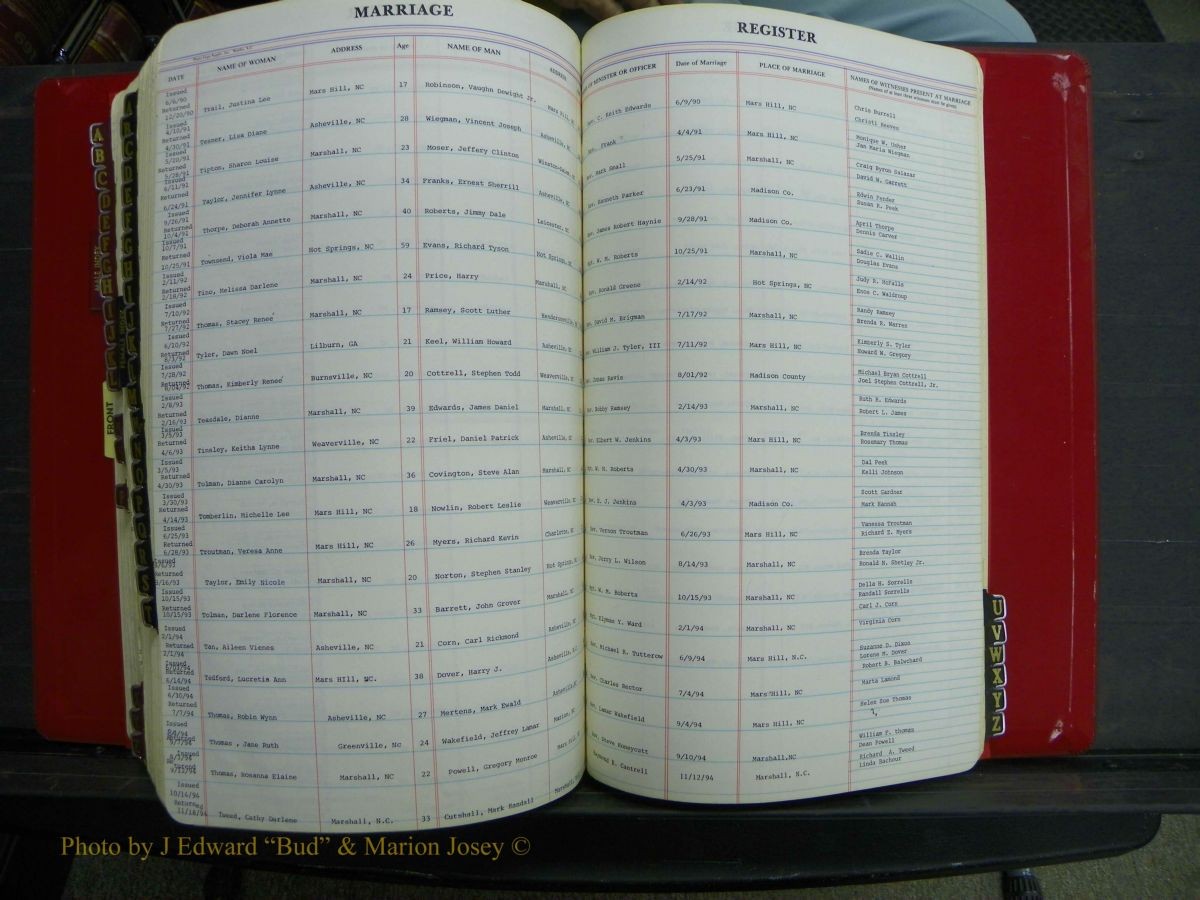 MARRIAGE
REGISTER
DATE NAME OF WOMAN ADDRESS Age NAME OF MAN ADDRESS OF MINISTER OR OFFICER Date of Marriage PLACE OF MARRIAGE NAMES OF WITNESSES PRESENT AT MARRIAGE
(Names of at least three witnesses must be given)
Issued
6/6/90
Returned
12/20/90
Trail, Justina Lee Mars Hill, NC 17 Robinson, Vaughn Dewight Jr. Mars Hill, C. Keith Edwards 6/9/90 Mars Hill, NC Chris Burrell
Christi Reeves
Issued
4/10/91
Returned
4/30/91
Teaner, Lisa Diane Asheville, NC 28 Wiegman, Vincent Joseph Asheville, Frank 4/4/91 Mars Hill, NC Monique W. Usher
Jan Maria Wiegman
Issued
5/20/91
Returned
5/28/91
Tipton, Sharon Louise Marshall, NC 23 Moser, Jeffery Clinton Winston-Salem, Mark Small 5/25/91 Marshall, NC Craig Byron Salazar
David W. Garrett
Issued
6/11/91
Returned
6/24/91
Taylor, Jennifer Lynne Asheville, NC 34 Franks, Ernest Sherrill Asheville, Kenneth Parker 6/23/91 Madison Co. Edwin Ponder
Susan R. Peek
Issued
9/26/91
Returned
10/4/91
Thorpe, Deborah Annette Marshall, NC 40 Roberts, Jimmy Dale Leicester, James Robert Haynie 9/28/91 Madison Co. April Thorpe
Dennis Carver
Issued
10/7/91
Returned
10/25/91
Townsend, Viola Mae Hot Springs, NC 59 Evans, Richard Tyson Hot Springs, W. M. Roberts 10/25/91 Marshall, NC Sadie C. Wallin
Douglas Evans
Issued
2/11/92
Returned
2/18/92
Tino, Melissa Darlene Marshall, NC 24 Price, Harry Marshall, Ronald Greene 2/14/92 Hot Springs, NC Judy R. McFalls
Enos C. Waldroup
Issued
7/10/92
Returned
7/27/92
Thomas, Stacey Renee' Marshall, NC 17 Ramsey, Scott Luther Hendersonville, David M. Brigman 7/17/92 Marshall, NC Randy Ramsey
Brenda R. Warren
Issued
6/10/92
Returned
Tyler, Dawn Noel Lilburn, GA 21 Keel, William Howard Asheville, William J. Tyler, III 7/11/92 Mars Hill, NC Kimberly S. Tyler
Howard W. Gregory
Issued
7/28/92
Returned
8/04/92
Thomas, Kimberly Renee' Burnsville, NC 20 Cottrell, Stephen Todd Weaverville, Jonas Ravie 8/01/92 Madison County Michael Bryan Cottrell
Joel Stephen Cottrell, Jr.
Issued
2/8/93
Returned
2/16/93
Teasdale, Dianne Marshall, NC 39 Edwards, James Daniel Marshall, Bobby Ramsey 2/14/93 Marshall, NC Ruth R. Edwards
Robert L. James
Issued
3/5/93
Returned
4/6/93
Tinsley, Keitha Lynne Weaverville, NC 22 Friel, Daniel Patrick Asheville, Elbert W. Jenkins 4/3/93 Mars Hill, NC Brenda Tinsley
Rosemary Thomas
Issued
3/5/93
Returned
4/30/93
Tolman, Dianne Carolyn Marshall, NC 36 Covington, Steve Alan Marshall, W. M. Roberts 4/30/93 Marshall, NC Dal Peek
Kelli Johnson
Issued
3/30/93
Returned
4/14/93
Tomberlin, Michelle Lee Mars Hill, NC 18 Nowlin, Robert Leslie Weaverville, E. J. Junkins 4/3/93 Madison Co. Scott Gardner
Mark Hannah
Issued
6/25/93
Returned
6/28/93
Troutman, Veresa Anne Mars Hill, NC 26 Myers, Richard Kevin Charlotte, Vernon Troutman 6/26/93 Mars Hill, NC Vanessa Troutman
Richard Z. Myers
Issued
Returned
Taylor, Emily Nicole Marshall, NC 20 Norton, Stephen Stanley Hot Springs, Jerry L. Wilson 8/14/93 Marshall, NC Brenda Taylor
Ronald N. Shetley Jr.
Issued
10/15/93
Returned
10/15/93
Tolman, Darlene Florence Marshall, NC 33 Barrett, John Grover Marshall, W. M. Roberts 10/15/93 Marshall, NC Della H. Sorrells
Randall Sorrells
Issued
2/1/94
Returned
2/1/94
Tan, Aileen Vienes Asheville, NC 21 Corn, Carl Rickmond Asheville, Ward 2/1/94 Marshall, NC Carl J. Corn
Virginia Corn
Returned
6/14/94
Tedford, Lucretia Ann Mars HIll, NC. 38 Dover, Harry J. Asheville, Michael R. Tutterow 6/9/94 Mars Hill, N.C. Suzanne D. Dixon
Lorene M. Dover
Robert B. Balwchard
Issued
6/30/94
Returned
7/7/94
Thomas, Robin Wynn Asheville, NC 27 Mertens, Mark Ewald Asheville, Charles Rector 7/4/94 Mars Hill, NC Marta Lamond
Helen Zoe Thomas
Issued
9/7/94
Thomas , Jane Ruth Greenville, Nc 24 Wakefield, Jeffrey Lamar Marion, Lamar Wakefield 9/4/94 Mars Hill, NC William F. thomas
Dean Powell
Thomas, Rosanna Elaine Marshall, NC 22 Powell, Gregory Monroe Mars Hill, Steve Honeycutt 9/10/94 Marshall,NC Richard A. Tweed
Linda Bachour
Issued
10/14/94
Returned
11/18/94
Tweed, Cathy Darlene Marshall, N.C. 33 Cutshall, Mark Randall Marshall, Raymond R. Cantrell 11/12/94 Marshall, N.C.
A
B
C
D
E
F
G
H
FRONT
S
T
U
V
W
X
Y
Z
Photo by J Edward “Bud” & Marion Josey ©